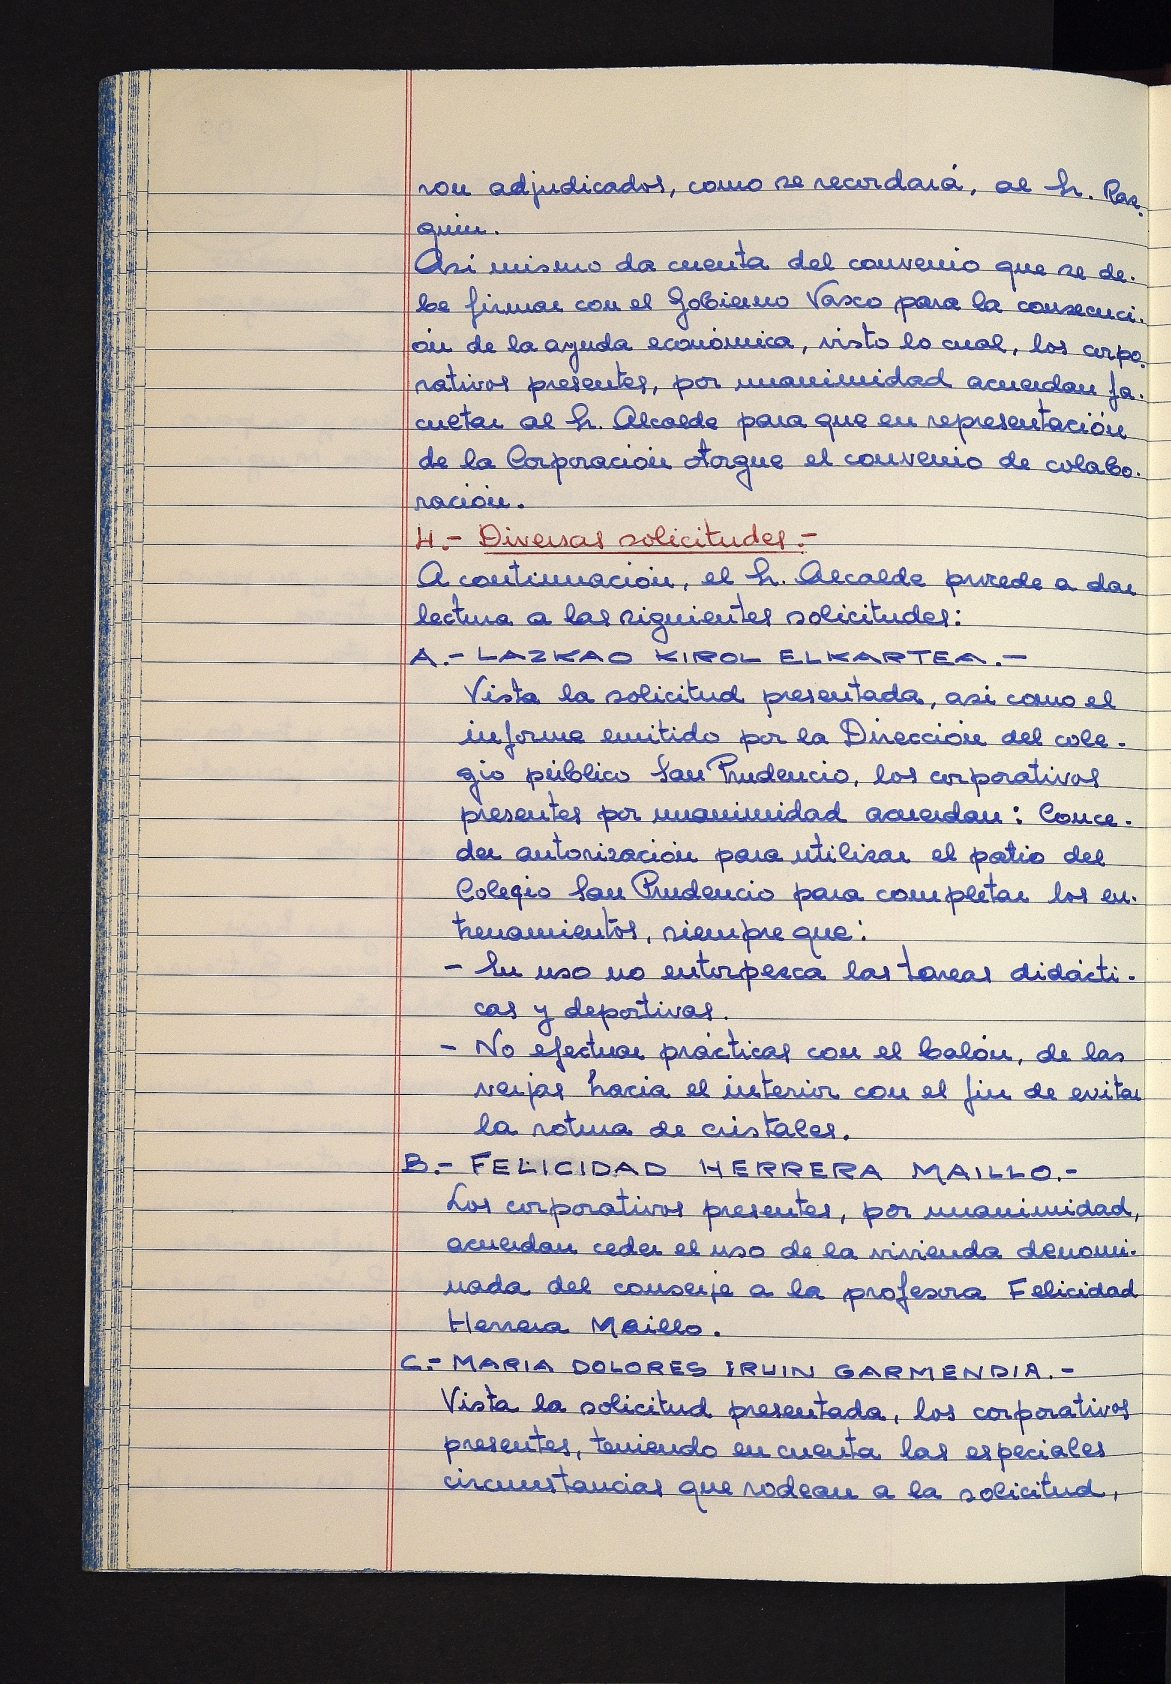 ron adjudicados, como se recordará, al Sr. Bar-
quín.
Asi mismo da cuenta del convenio que se de-
be firmar con el Gobierno Vasco para la consecuci-
ón de la ayuda económica, visto lo cual, los corpo-
rativos presentes, por unanimidad acuerdan fa-
cultar al Sr. Alcalde para que en representación
de la Corporación otorgue el convenio de colabo-
ración.
4.- Diversas solicitudes.-
A continuación, el Sr. Alcalde procede a dar
lectura a las siguientes solicitudes:
A.- LAZKAO KIROL ELKARTEA.-
Vista la solicitud presentada, asi como el
informe emitido por la Dirección del cole-
gio público San Prudencio, los corporativos
presentes por unanimidad acuerdan: Conce-
der autorización para utilizar el patio del
Colegio San Prudencio para completar los en-
trenamientos, siempre que:
- Su uso no entorpezca las tareas didácti-
cas y deportivas.
- No efectuar prácticas con el balón, de las
verjas hacia el interior con el fin de evitar
la rotura de cristales.
B.- FELICIDAD HERRERA MAILLO.-
Los corporativos presentes, por unanimidad,
acuerdan ceder el uso de la vivienda denomi-
nada del conserje a la profesora Felicidad
Herrera Maillo.
C.- MARIA DOLORES IRUIN GARMENDIA.-
Vista la solicitud presentada, los corporativos
presentes, teniendo en cuenta las especiales
circunstancias que rodean a la solicitud,